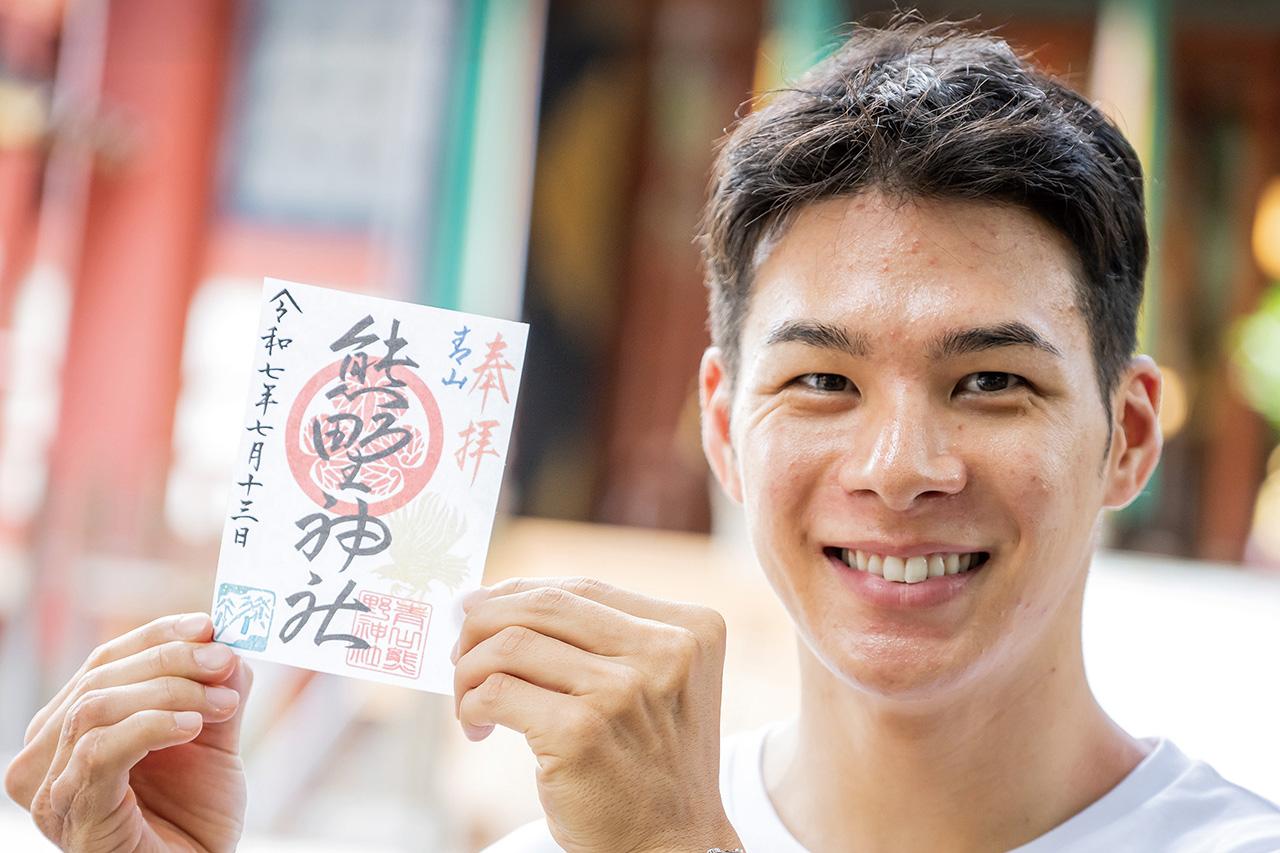 奉拝
青山
熊野神社
令和七年七月十三日
青山熊
野神社